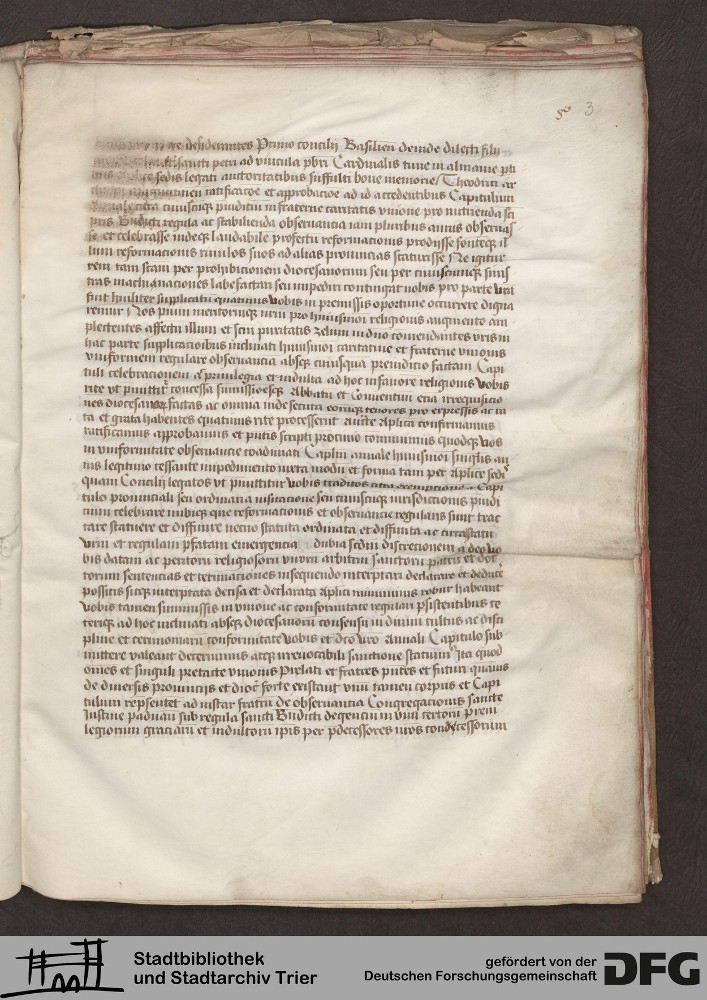 3
desiderantes Primo concilij Basilien deinde dilecti filij
sancti petri ad vincula pbri Cardinalis tunc in almanie pti
sedis legati auctoritatibus suffulti bone memorie Theodrici ar
ratificacoe et approbacoe ad id accedentibus Capitulum
cuiuscumqz preiudiciu in fraterne caritatis vnione pro nutrienda sci
pris Bndicti regula ac stabilienda obseruancia iam pluribus annis obseruas
se et celebrasse indeqz laudabile profectu reformacionis prodijsse fonteqz il
lum reformacionis riuulos suos ad alias prouincias scaturisse Ne igitur
rem tam scam per prohibicionem diocesanorum seu per cuiuscumqz sinis
tras machinaciones labefactari seu impediri contingat nobis pro parte vra
fuit humiliter supplicatu quatinus vobis in premissis oportune occurrere digna
remur Nos pium meritoriumqz vrm pro huiusmoi religionis augmento am
plectentes affectu illum et scm puritatis zelum in dno comendantes vris in
hac parte supplicacoibus inclinati huiusmoi caritatiue et fraterne vnionis
vniformem regulare obseruancia absqz cuiusqua preiudicio factam Capi
tuli celebracionem ac priuilegia et indulta ad hoc in fauore religionis vobis
rite vt pmittit concessa summissioesqz Abbatu et Conuentuu etia irrequisicio
nes diocesanor factas ac omnia inde secuta eorumqz tenores pro expressis ac ra
ta et grata habentes quatinus rite processerit Aucte Aplica confirmamus
ratificamus approbamus et pntis scripti procinio communimus quodqz vos
in vniformitate obseruancie coadunati Caplm annale huiusmoi singlis an
nis legitimo cessante impedimento iuxta modu et forma tam per Aplice sedis
quam Concilij legatos vt pmittitur vobis traditos citra exempcionis a Capi
tulo prouinciali seu ordinaria visitacione seu cuiuscumqz iurisdictionis piudi
cium celebrare inibiqz que reformacionis et obseruancie regularis sunt trac
tare statuere et diffinire necno statuta ordinata et diffinita ac circa statu
vrm et regulam pfatam emergencia dubia scdm discretionem a deo vo
bis datam ac peritoru religiosoru viroru arbitriu sanctoru patru et doc
torum sentencias et terminaciones insequendo interpretari declarare et deducere
possitis sicqz interpretata decisa et declarata Aplici muniminis robur habeant
vobis tamen summissis in vnione ac conformitate regulari psistentibus ce
teriqz ad hoc inclinati absqz diocesanoru consensu in diuini cultus ac disci
pline et cerimoniaru conformitate vobis et dco vro Annali Capitulo sub
mittere valeant decernimus atqz irreuocabili sanctione statuim Ita quod
omes et singuli pretacte vnionis Prelati et fratres pntes et futuri quauis
de diuersis prouincijs et dioc forte existant vnu tamen corpus et Capi
tulum repsentet ad instar fratru de obseruancia Congregacionis sancte
Iustine paduan sub regula sancti Bndicti degenciu in vim certoru preui
legiorum graciaru et indultoru ipis per pdecessores nros concessorum
Stadtbibliothek
und Stadtarchiv Trier
gefördert von der
Deutschen Forschungsgemeinschaft
DFG